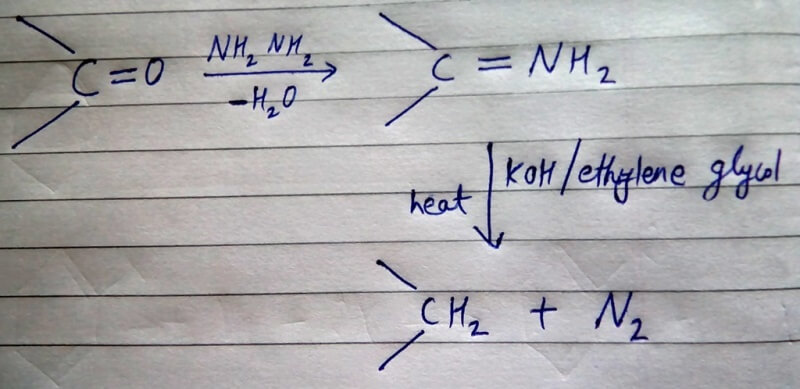 C=O NH₂NH₂ -H₂O C = NH₂
heat KOH/ethylene glycol
CH₂ + N₂